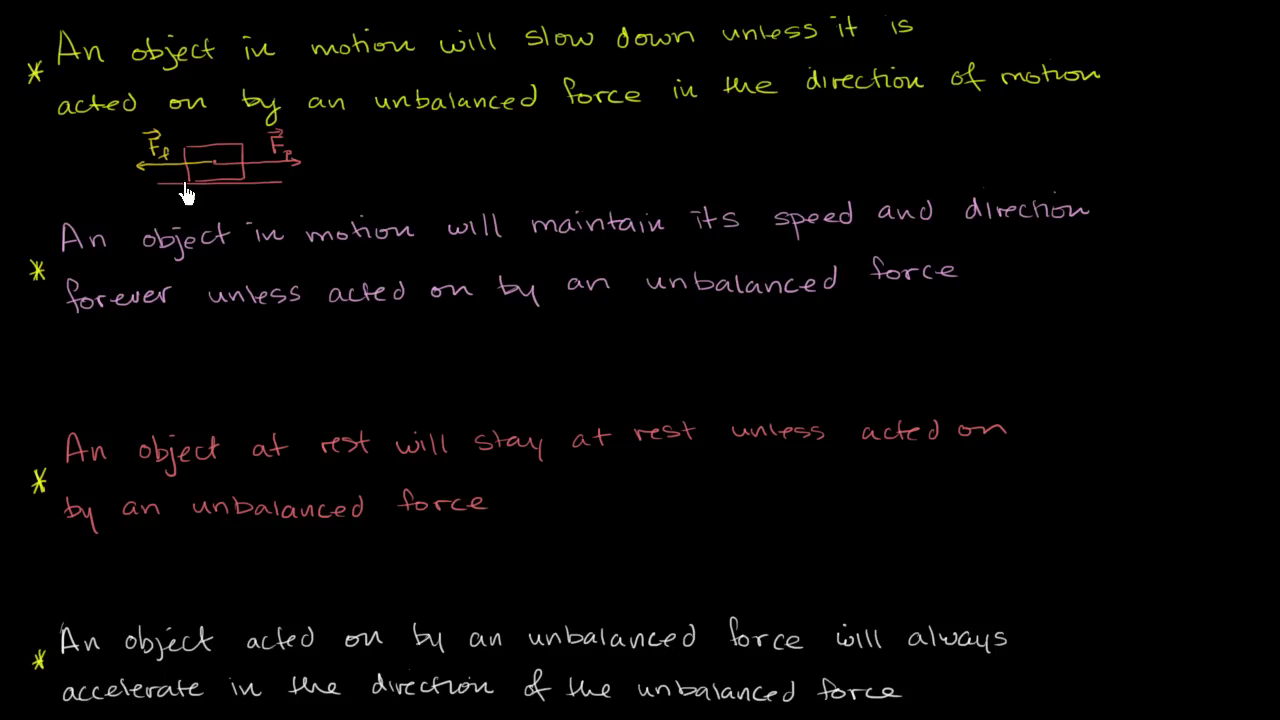 An object in motion will slow down unless it is
acted on by an unbalanced force in the direction of motion
F⃗f F⃗p
An object in motion will maintain its speed and direction
forever unless acted on by an unbalanced force
An object at rest will stay at rest unless acted on
by an unbalanced force
An object acted on by an unbalanced force will always
accelerate in the direction of the unbalanced force